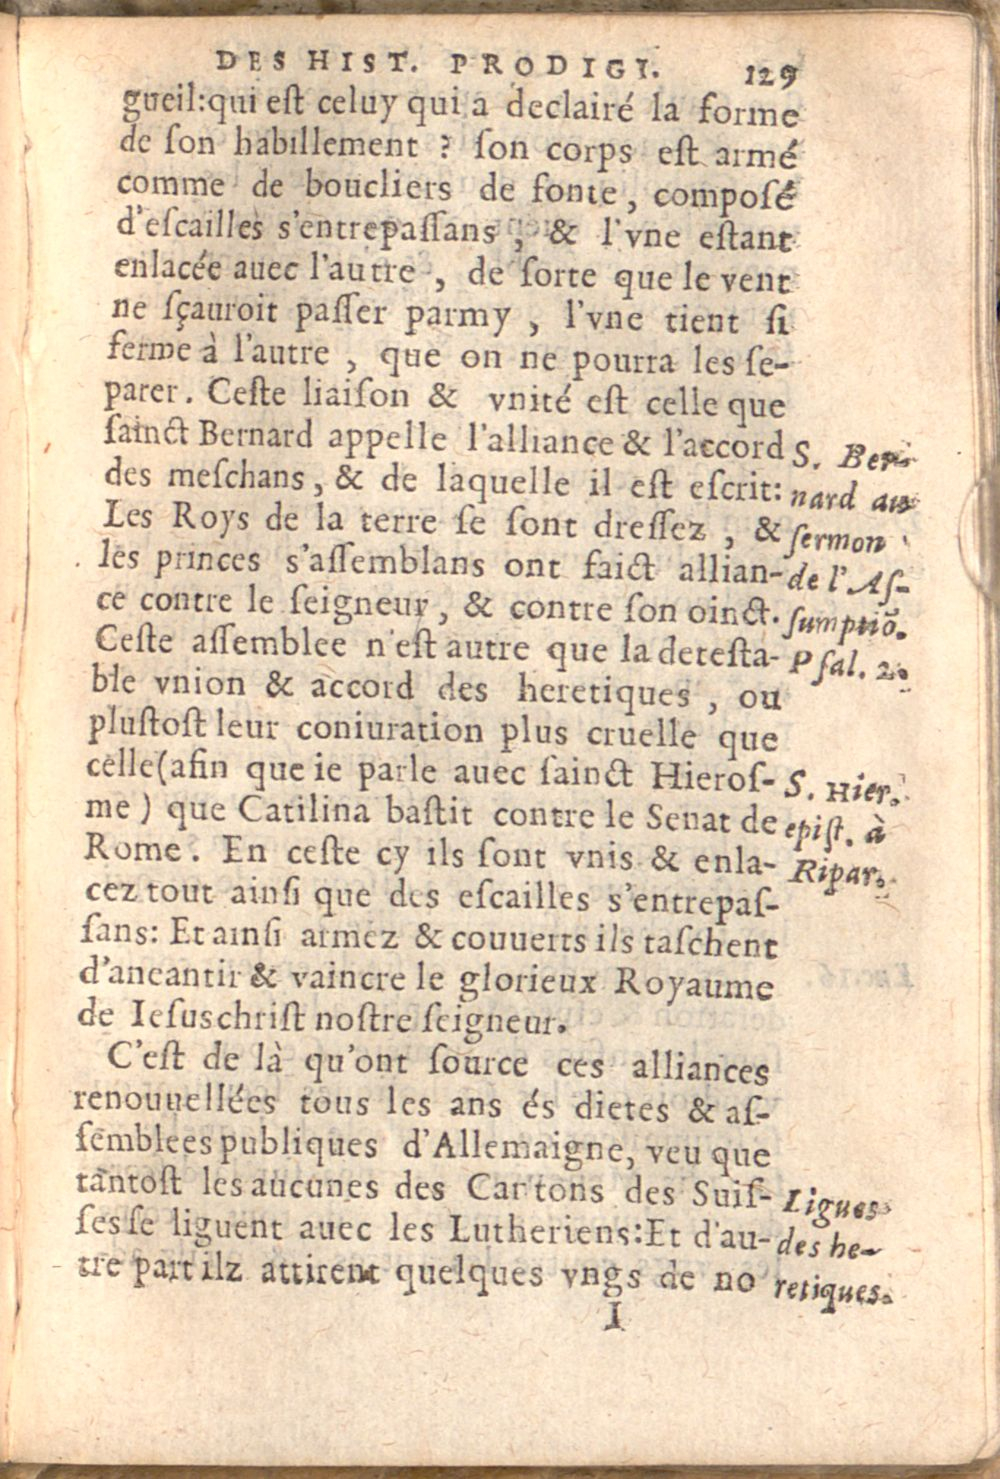 DES HIST. PRODIGI. 129
gueil:qui eſt celuy qui a declairé la forme
de ſon habillement ? ſon corps eſt armé
comme de boucliers de fonte, compoſé
d'eſcailles s'entrepaſſans, & l'vne eſtant
enlacée auec l'autre, de ſorte que le vent
ne ſçauroit paſſer parmy, l'vne tient ſi
ferme à l'autre, que on ne pourra les ſe-
parer. Ceſte liaiſon & vnité eſt celle que
ſainct Bernard appelle l'alliance & l'accord
des meſchans, & de laquelle il eſt eſcrit:
Les Roys de la terre ſe ſont dreſſez, &
les princes s'aſſemblans ont faict allian-
ce contre le ſeigneur, & contre ſon oinct.
Ceſte aſſemblee n'eſt autre que la deteſta-
ble vnion & accord des heretiques, ou
pluſtoſt leur coniuration plus cruelle que
celle(afin que ie parle auec ſainct Hieroſ-
me) que Catilina baſtit contre le Senat de
Rome. En ceſte cy ils ſont vnis & enla-
cez tout ainſi que des eſcailles s'entrepaſ-
ſans: Et ainſi armez & couuerts ils taſchent
d'aneantir & vaincre le glorieux Royaume
de Ieſuschriſt noſtre ſeigneur.
C'eſt de là qu'ont ſource ces alliances
renouuellées tous les ans és dietes & aſ-
ſemblees publiques d'Allemaigne, veu que
tantoſt les aucunes des Cartons des Suiſ-
ſes ſe liguent auec les Lutheriens:Et d'au-
tre part ilz attirent quelques vngs de no
I
S. Ber-
nard au
ſermon
de l'Aſ-
ſumptiõ.
Pſal. 2.
S. Hier.
epiſt. à
Ripar.
Ligues
des he-
retiques.